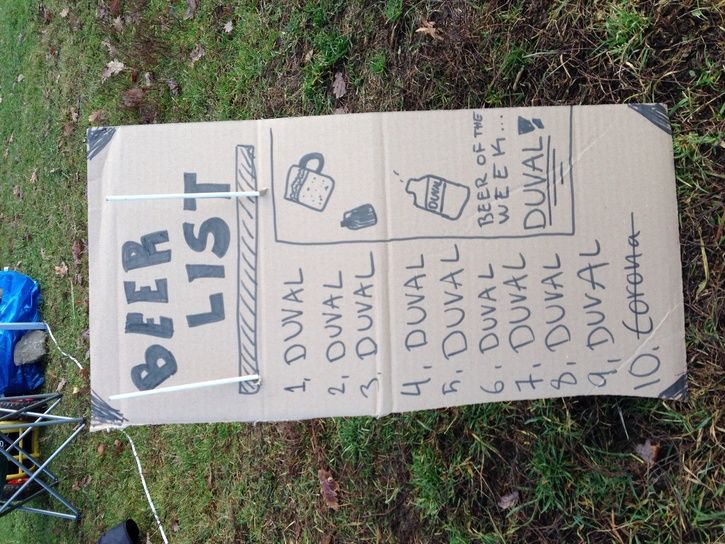 BEER
LIST
1. DUVAL
2. DUVAL
3. DUVAL
4. DUVAL
5. DUVAL
6. DUVAL
7. DUVAL
8. DUVAL
9. DUVAL
10. Corona
DUVAL
BEER OF THE
WEEK...
DUVAL!